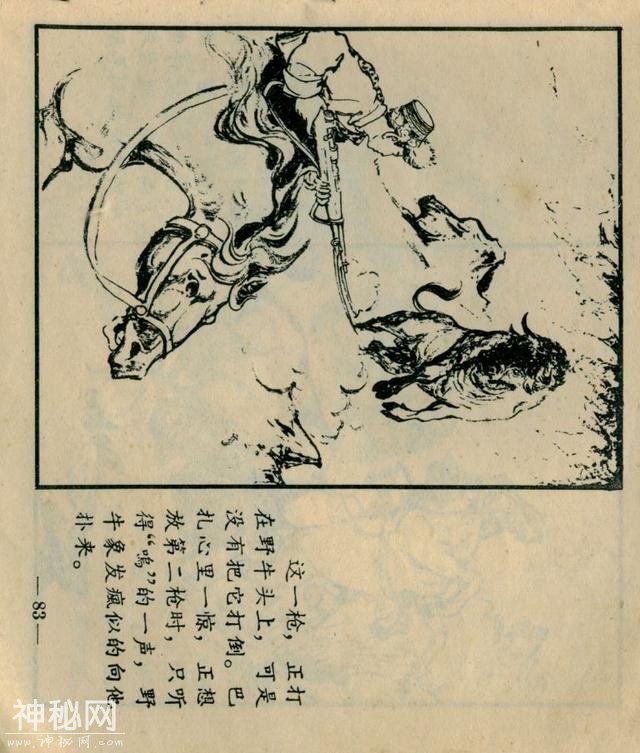 这一枪，正打
在野牛头上，可是
没有把它打倒。巴
扎心里一惊，正想
放第二枪时，只听
得“呜”的一声，野
牛象发疯似的向他
扑来。
—83—
神秘网